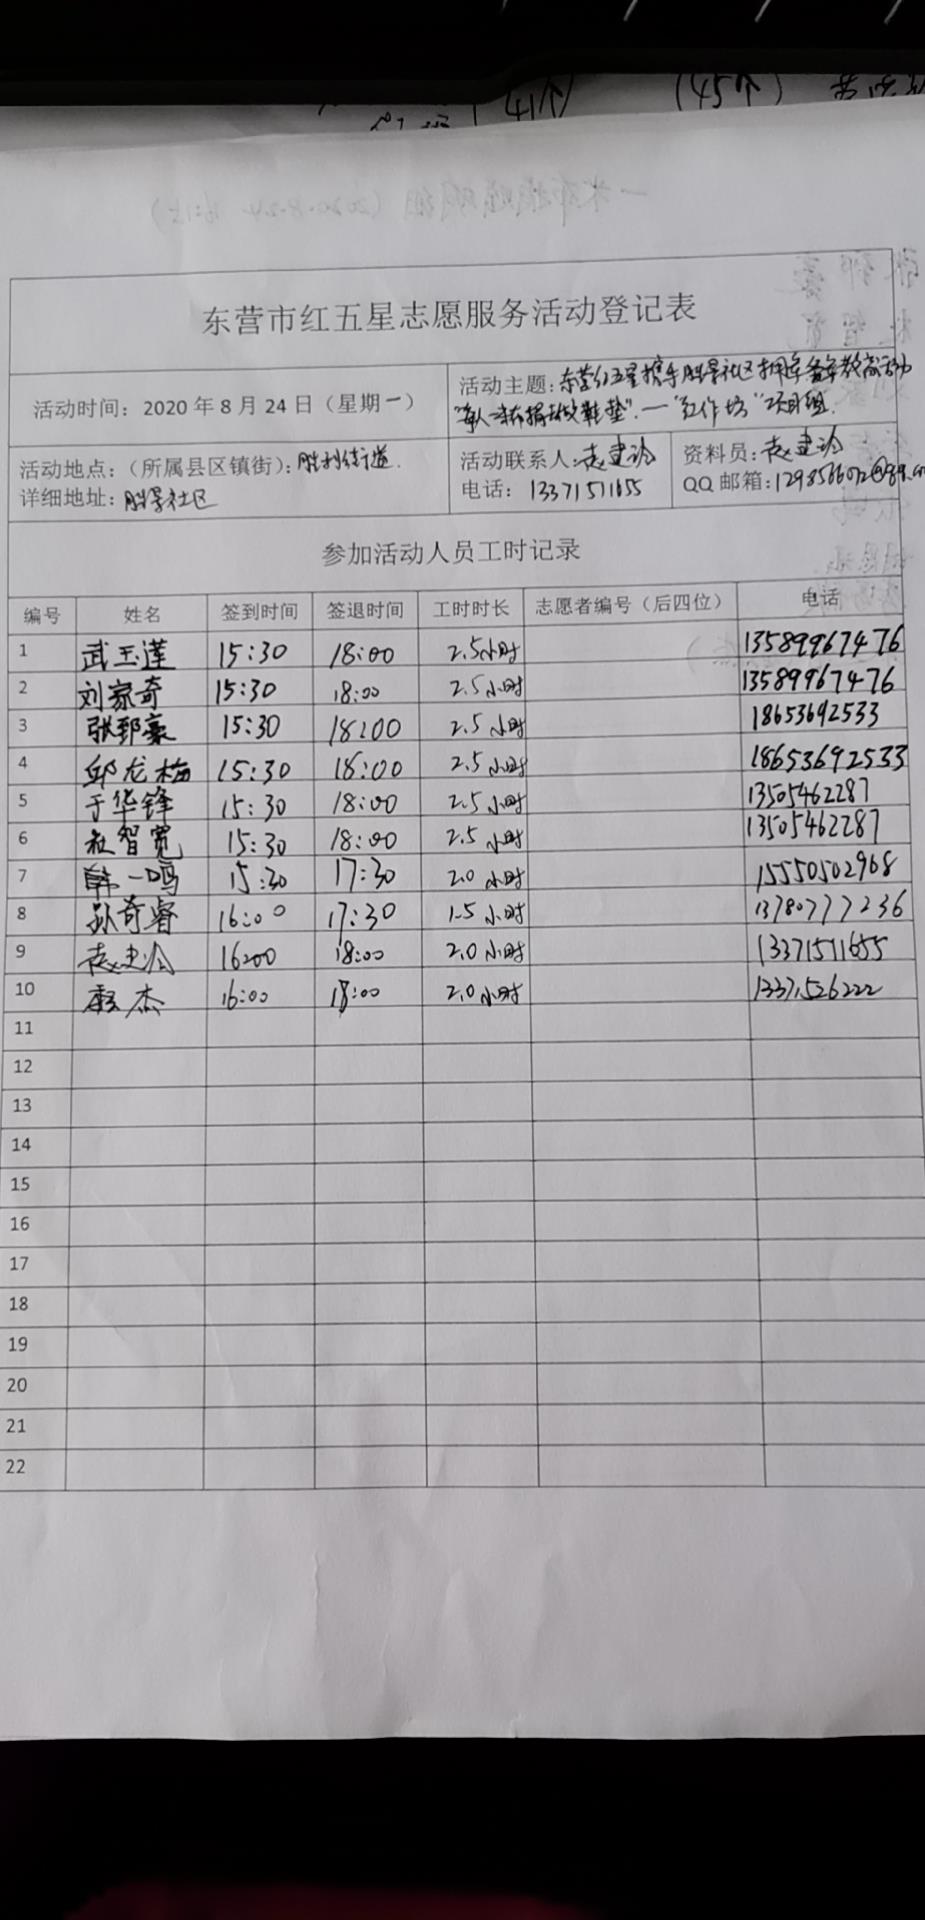 东营市红五星志愿服务活动登记表
活动时间：2020年8月24日（星期一）
活动主题：东营红五星携手胜景社区拥军
鞋垫"．—"红作坊"项目组．
活动地点：（所属县区镇街）：胜利街道．
详细地址：胜景社区
活动联系人：
电话：13371571655
资料员：
QQ邮箱：1298566072@qq.com
参加活动人员工时记录
编号 姓名 签到时间 签退时间 工时时长 志愿者编号（后四位） 电话
1 武玉莲 15:30 18:00 2.5小时 13589967476
2 刘家奇 15:30 18:00 2.5小时 13589967476
3 张郅豪 15:30 18:00 2.5小时 18653692533
4 邱龙梅 15:30 18:00 2.5小时 18653692533
5 于华锋 15:30 18:00 2.5小时 13505462287
6 杜智宽 15:30 18:00 2.5小时 13505462287
7 韩一鸣 15:30 17:30 2.0小时 15550502968
8 孙奇睿 16:00 17:30 1.5小时 13780777236
9 16:00 18:00 2.0小时 13371571655
10 杰 16:00 18:00 2.0小时 13371526222
11
12
13
14
15
16
17
18
19
20
21
22